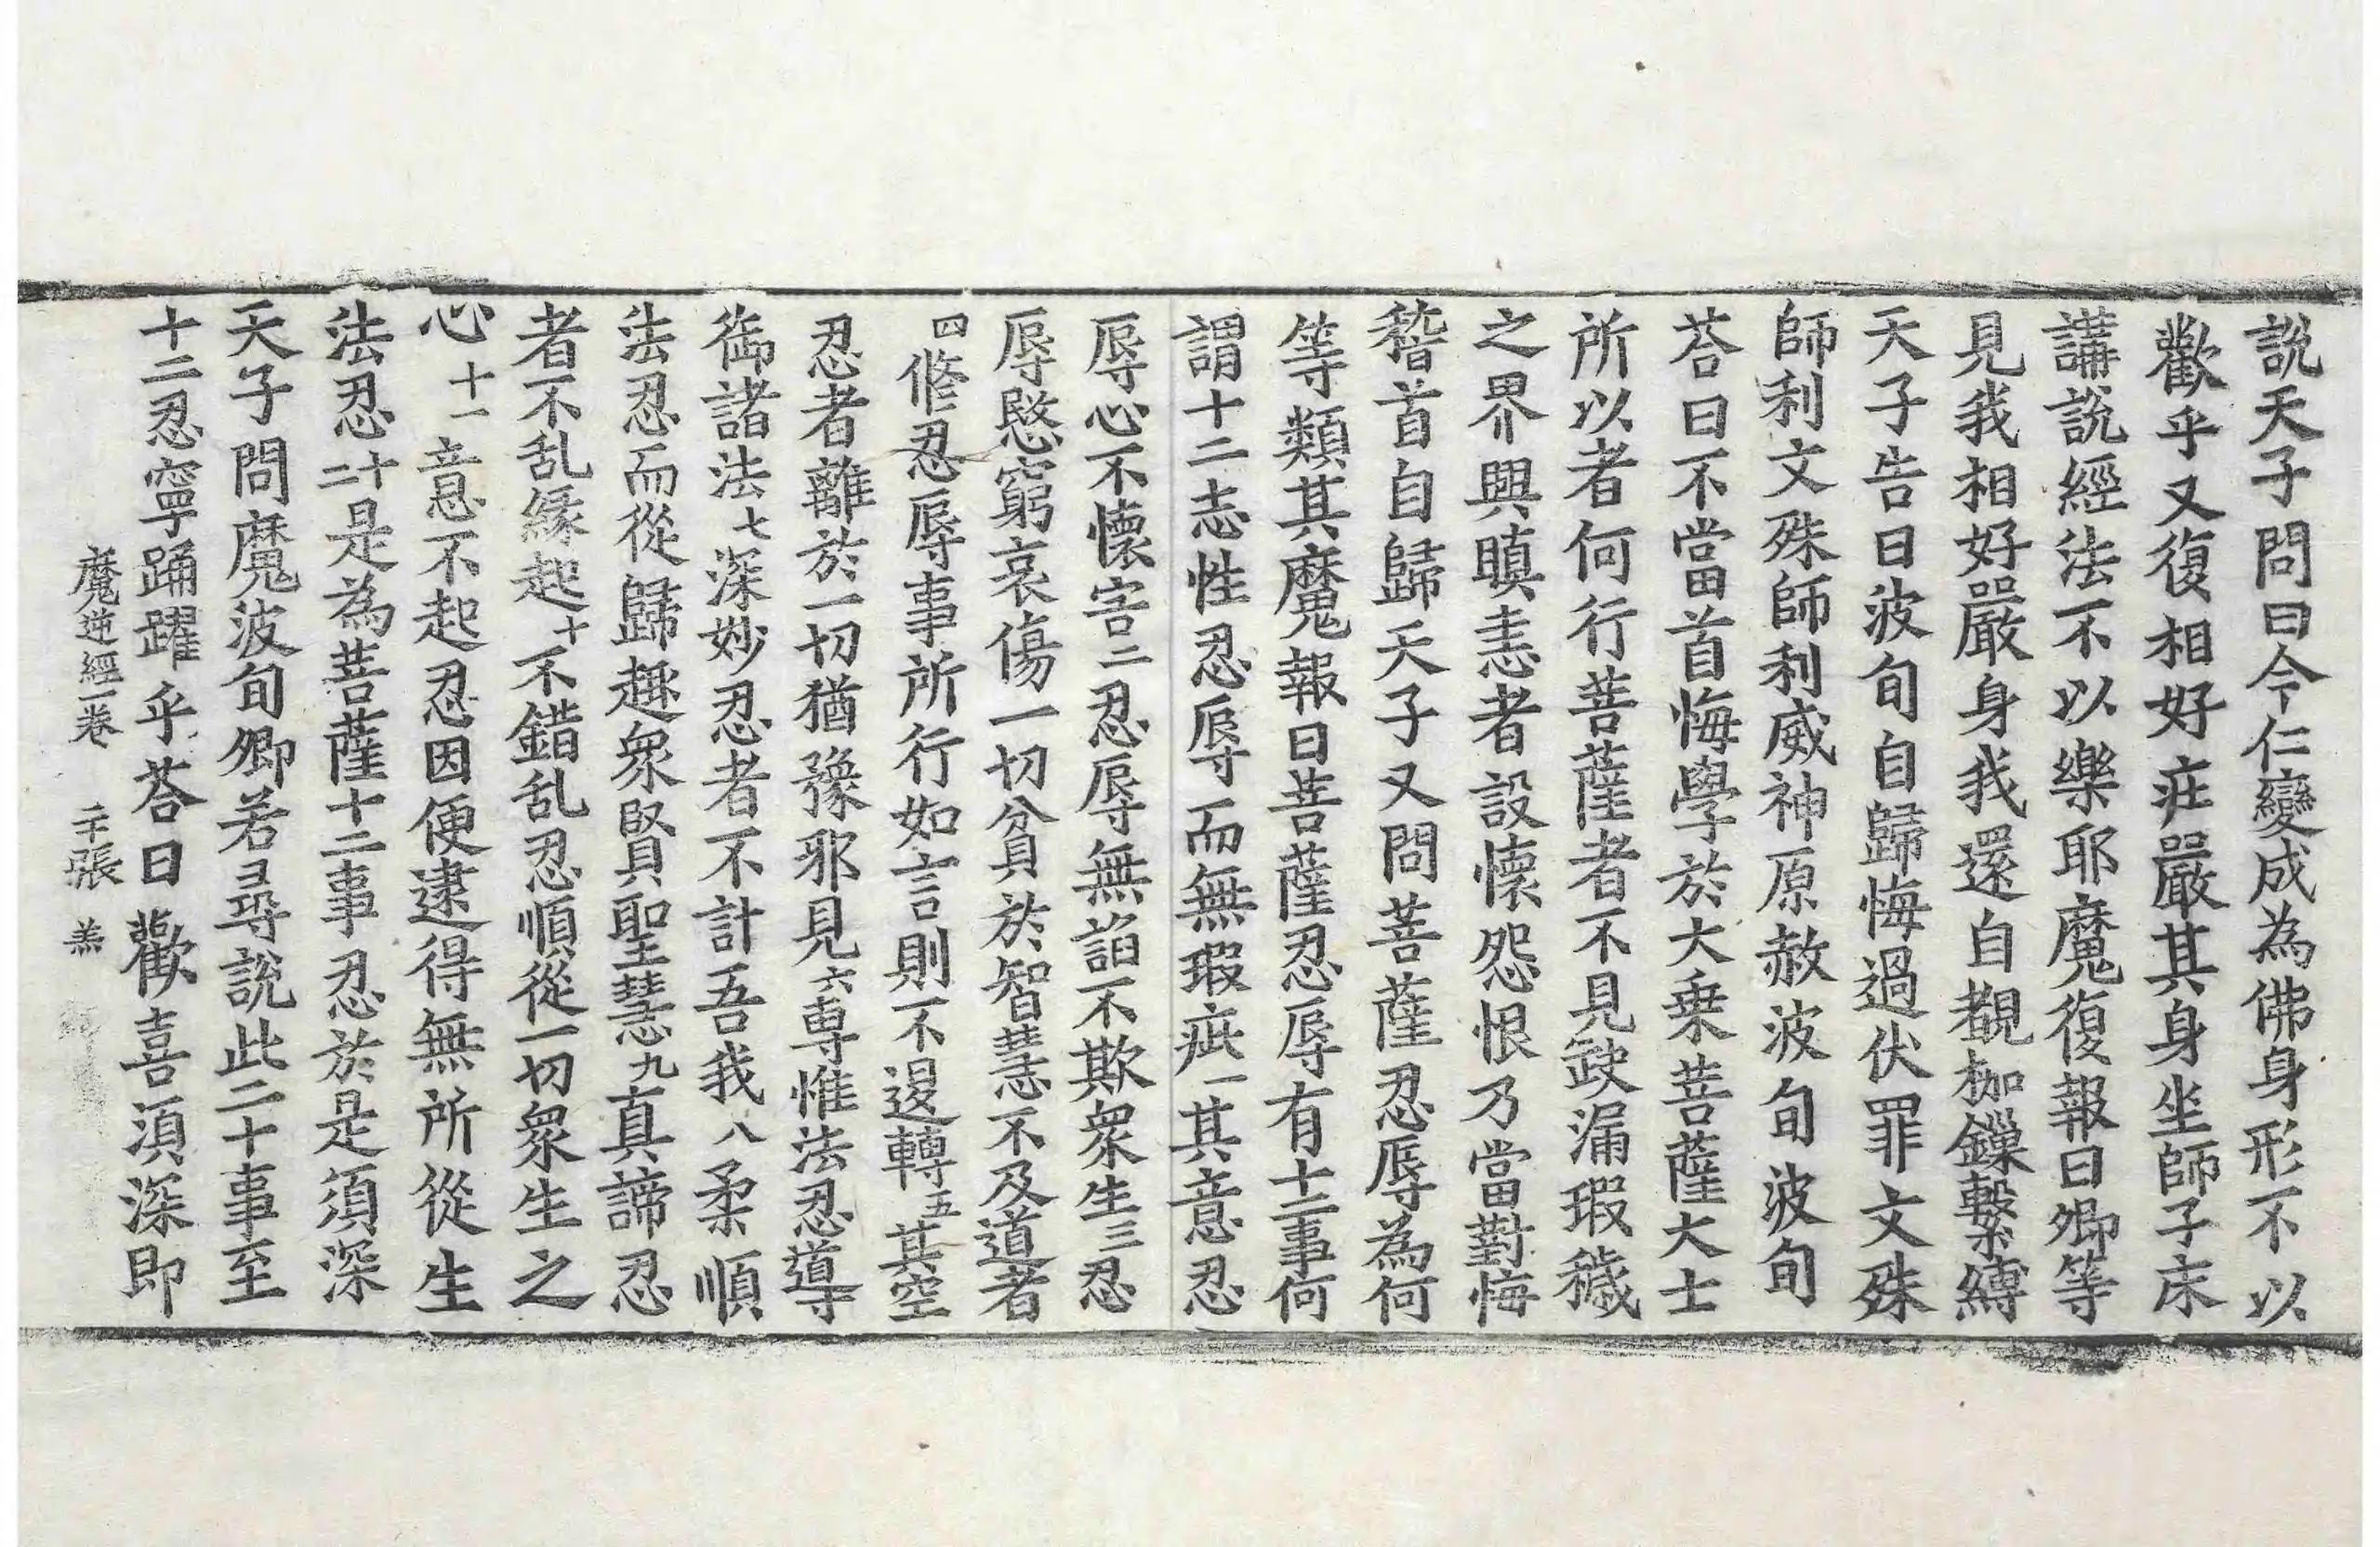 說天子問曰今仁變成為佛身形不以
歡乎又復相好庄嚴其身坐師子床
講說經法不以樂耶魔復報曰卿等
見我相好嚴身我還自覩枷鏁繫縛
天子告曰波旬自歸悔過伏罪文殊
師利文殊師利威神原赦波旬波旬
荅曰不當首悔學於大乗菩薩大士
所以者何行菩薩者不見𡙇漏瑕穢
之界興瞋恚者設懷怨恨乃當對悔
稽首自歸天子又問菩薩忍辱為何
等類其魔報曰菩薩忍辱有十二事何
謂十二志性忍辱而無瑕疵一其意忍
辱心不懷害二忍辱無諂不欺衆生三忍
辱愍窮哀傷一切貧於智慧不及道者
四修忍辱事所行如言則不退轉五其空
忍者離於一切猶豫邪見六專惟法忍導
御諸法七深妙忍者不計吾我八柔順
法忍而從歸趣衆賢聖慧九真諦忍
者不乱緣起十不錯乱忍順從一切衆生之
心十一意不起忍因便逮得無所從生
法忍十二是為菩薩十二事忍於是須深
天子問魔波旬卿若尋說此二十事至
十二忍寧踊躍乎荅曰歡喜湏深即
魔逆經一卷 二十張 羔